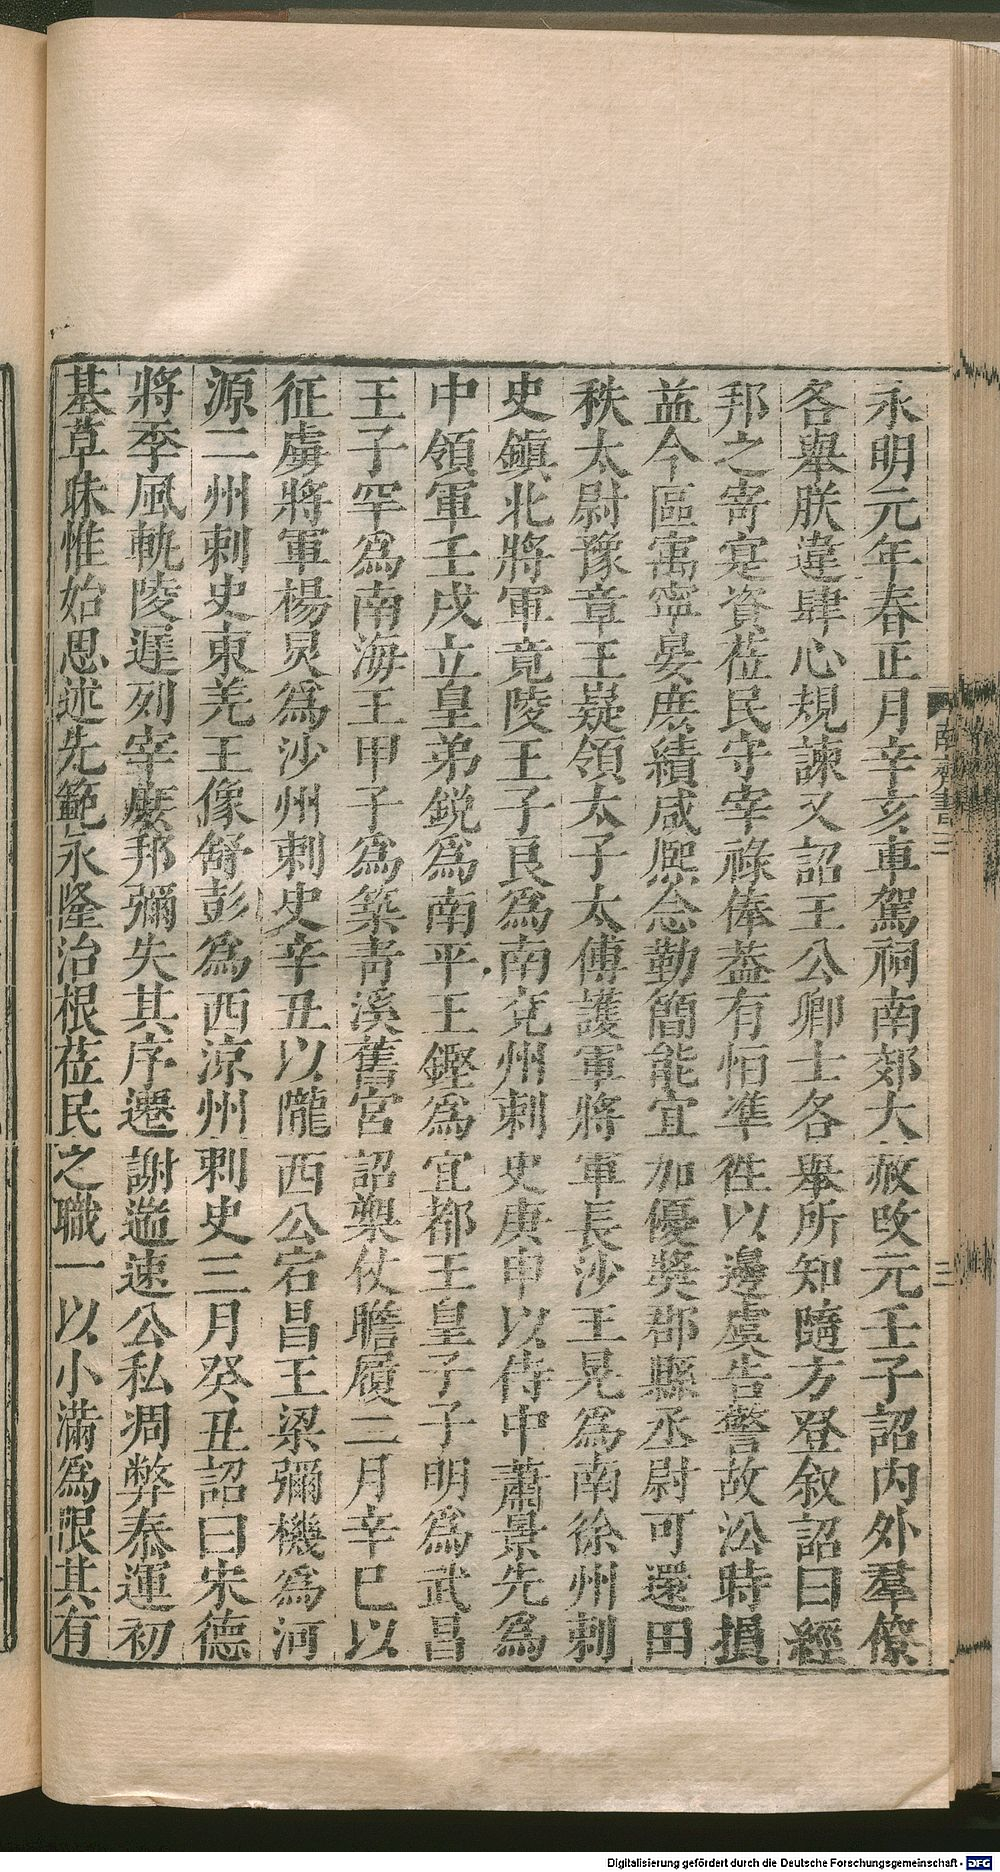 永明元年春正月辛亥車駕祠南郊大赦改元壬子詔内外羣僚
各舉朕違肆心規諫又詔王公卿士各舉所知隨方登叙詔曰經
邦之寄寔資莅民守宰祿俸蓋有恒準徃以邊虞告警故沿時損
益今區寓寧晏庶績咸熈念勤簡能宜加優奬郡縣丞尉可還田
秩太尉豫章王嶷領太子太傅護軍將軍長沙王晃爲南徐州刺
史鎮北將軍竟陵王子良爲南兖州刺史庚申以侍中蕭景先爲
中領軍壬戌立皇弟鋭爲南平王鏗爲宜都王皇子子明爲武昌
王子罕爲南海王甲子爲築青溪舊宮詔槊仗瞻履二月辛巳以
征虜將軍楊炅爲沙州刺史辛丑以隴西公宕昌王梁彌機爲河
源二州刺史東羌王像舒彭爲西涼州刺史三月癸丑詔曰宋德
將季風軌陵遲列宰庶邦彌失其序遷謝遄速公私凋弊泰運初
基草昧惟始思述先範永隆治根莅民之職一以小滿爲限其有
南齊書三
二
Digitalisierung gefördert durch die Deutsche Forschungsgemeinschaft - DFG